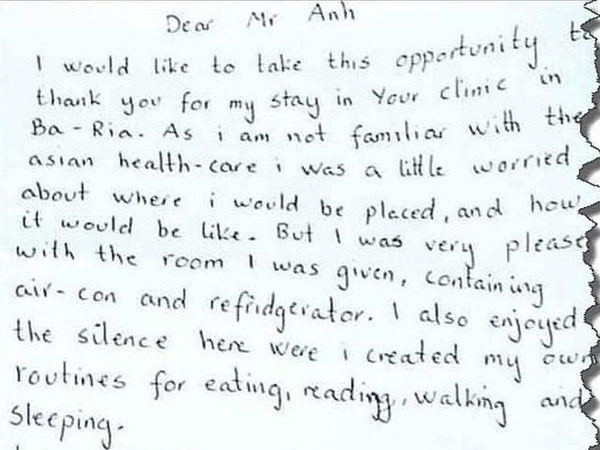 Dear Mr Anh
I would like to take this opportunity t
thank you for my stay in Your clinic in
Ba-Ria. As i am not familiar with the
asian health-care i was a little worried
about where i would be placed, and how
it would be like. But I was very please
with the room I was given, containing
air-con and refridgerator. I also enjoyed
the silence here were i created my own
routines for eating, reading, walking and
sleeping.